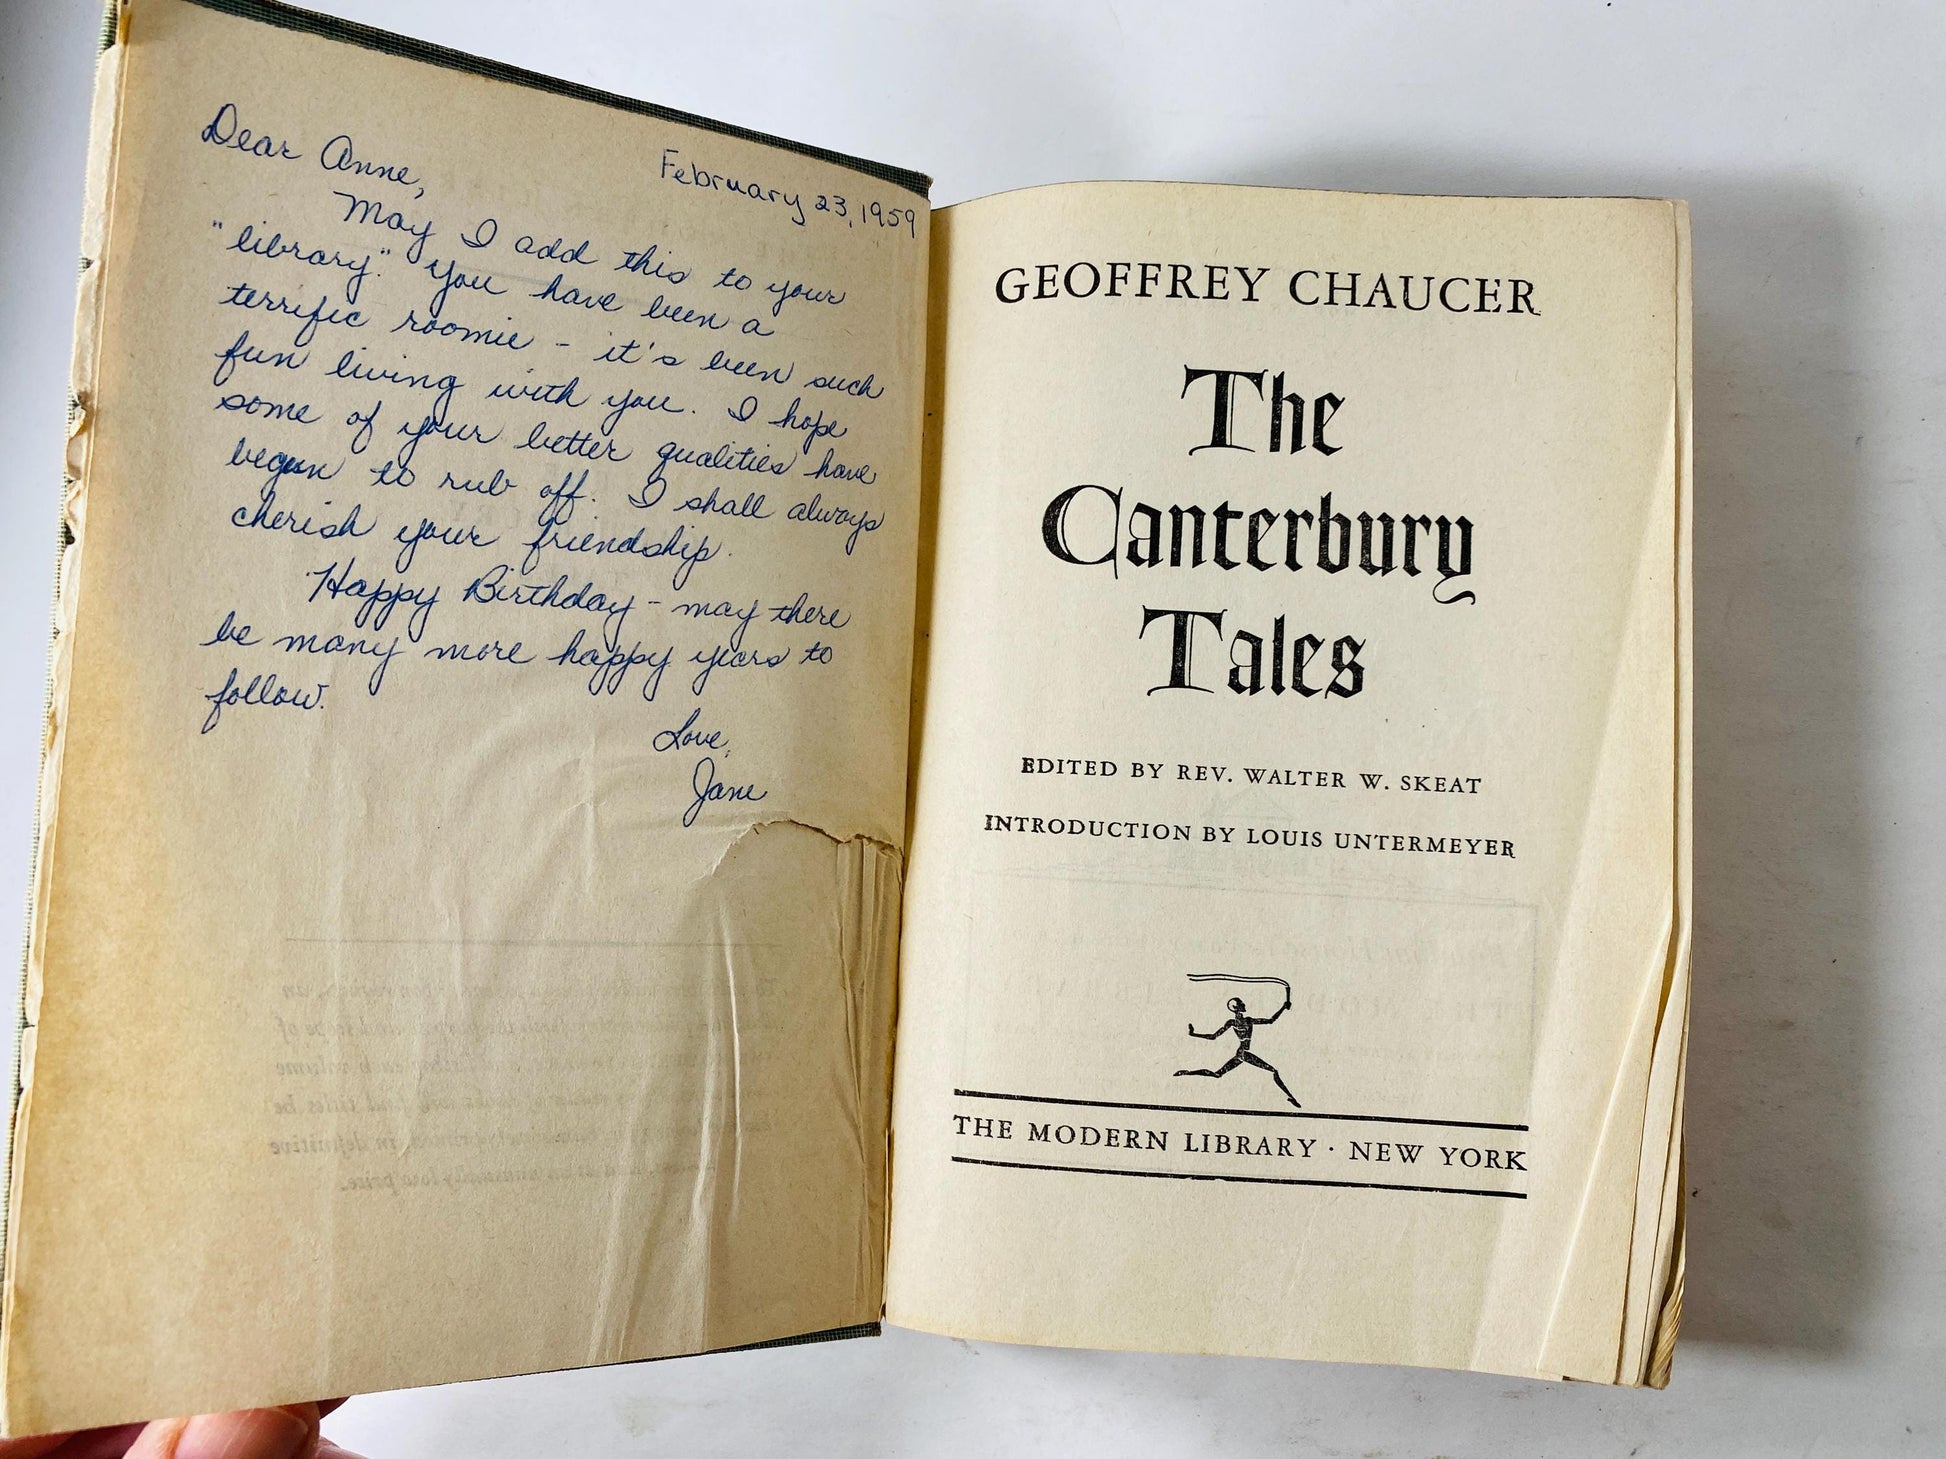 February 23, 1959
Dear Anne,
May I add this to your
"library." You have been a
terrific roomie - it's been such
fun living with you. I hope
some of your better qualities have
begun to rub off. I shall always
cherish your friendship.
Happy Birthday - may there
be many more happy years to
follow.
Love,
Jane
GEOFFREY CHAUCER
The
Canterbury
Tales
EDITED BY REV. WALTER W. SKEAT
INTRODUCTION BY LOUIS UNTERMEYER
THE MODERN LIBRARY · NEW YORK